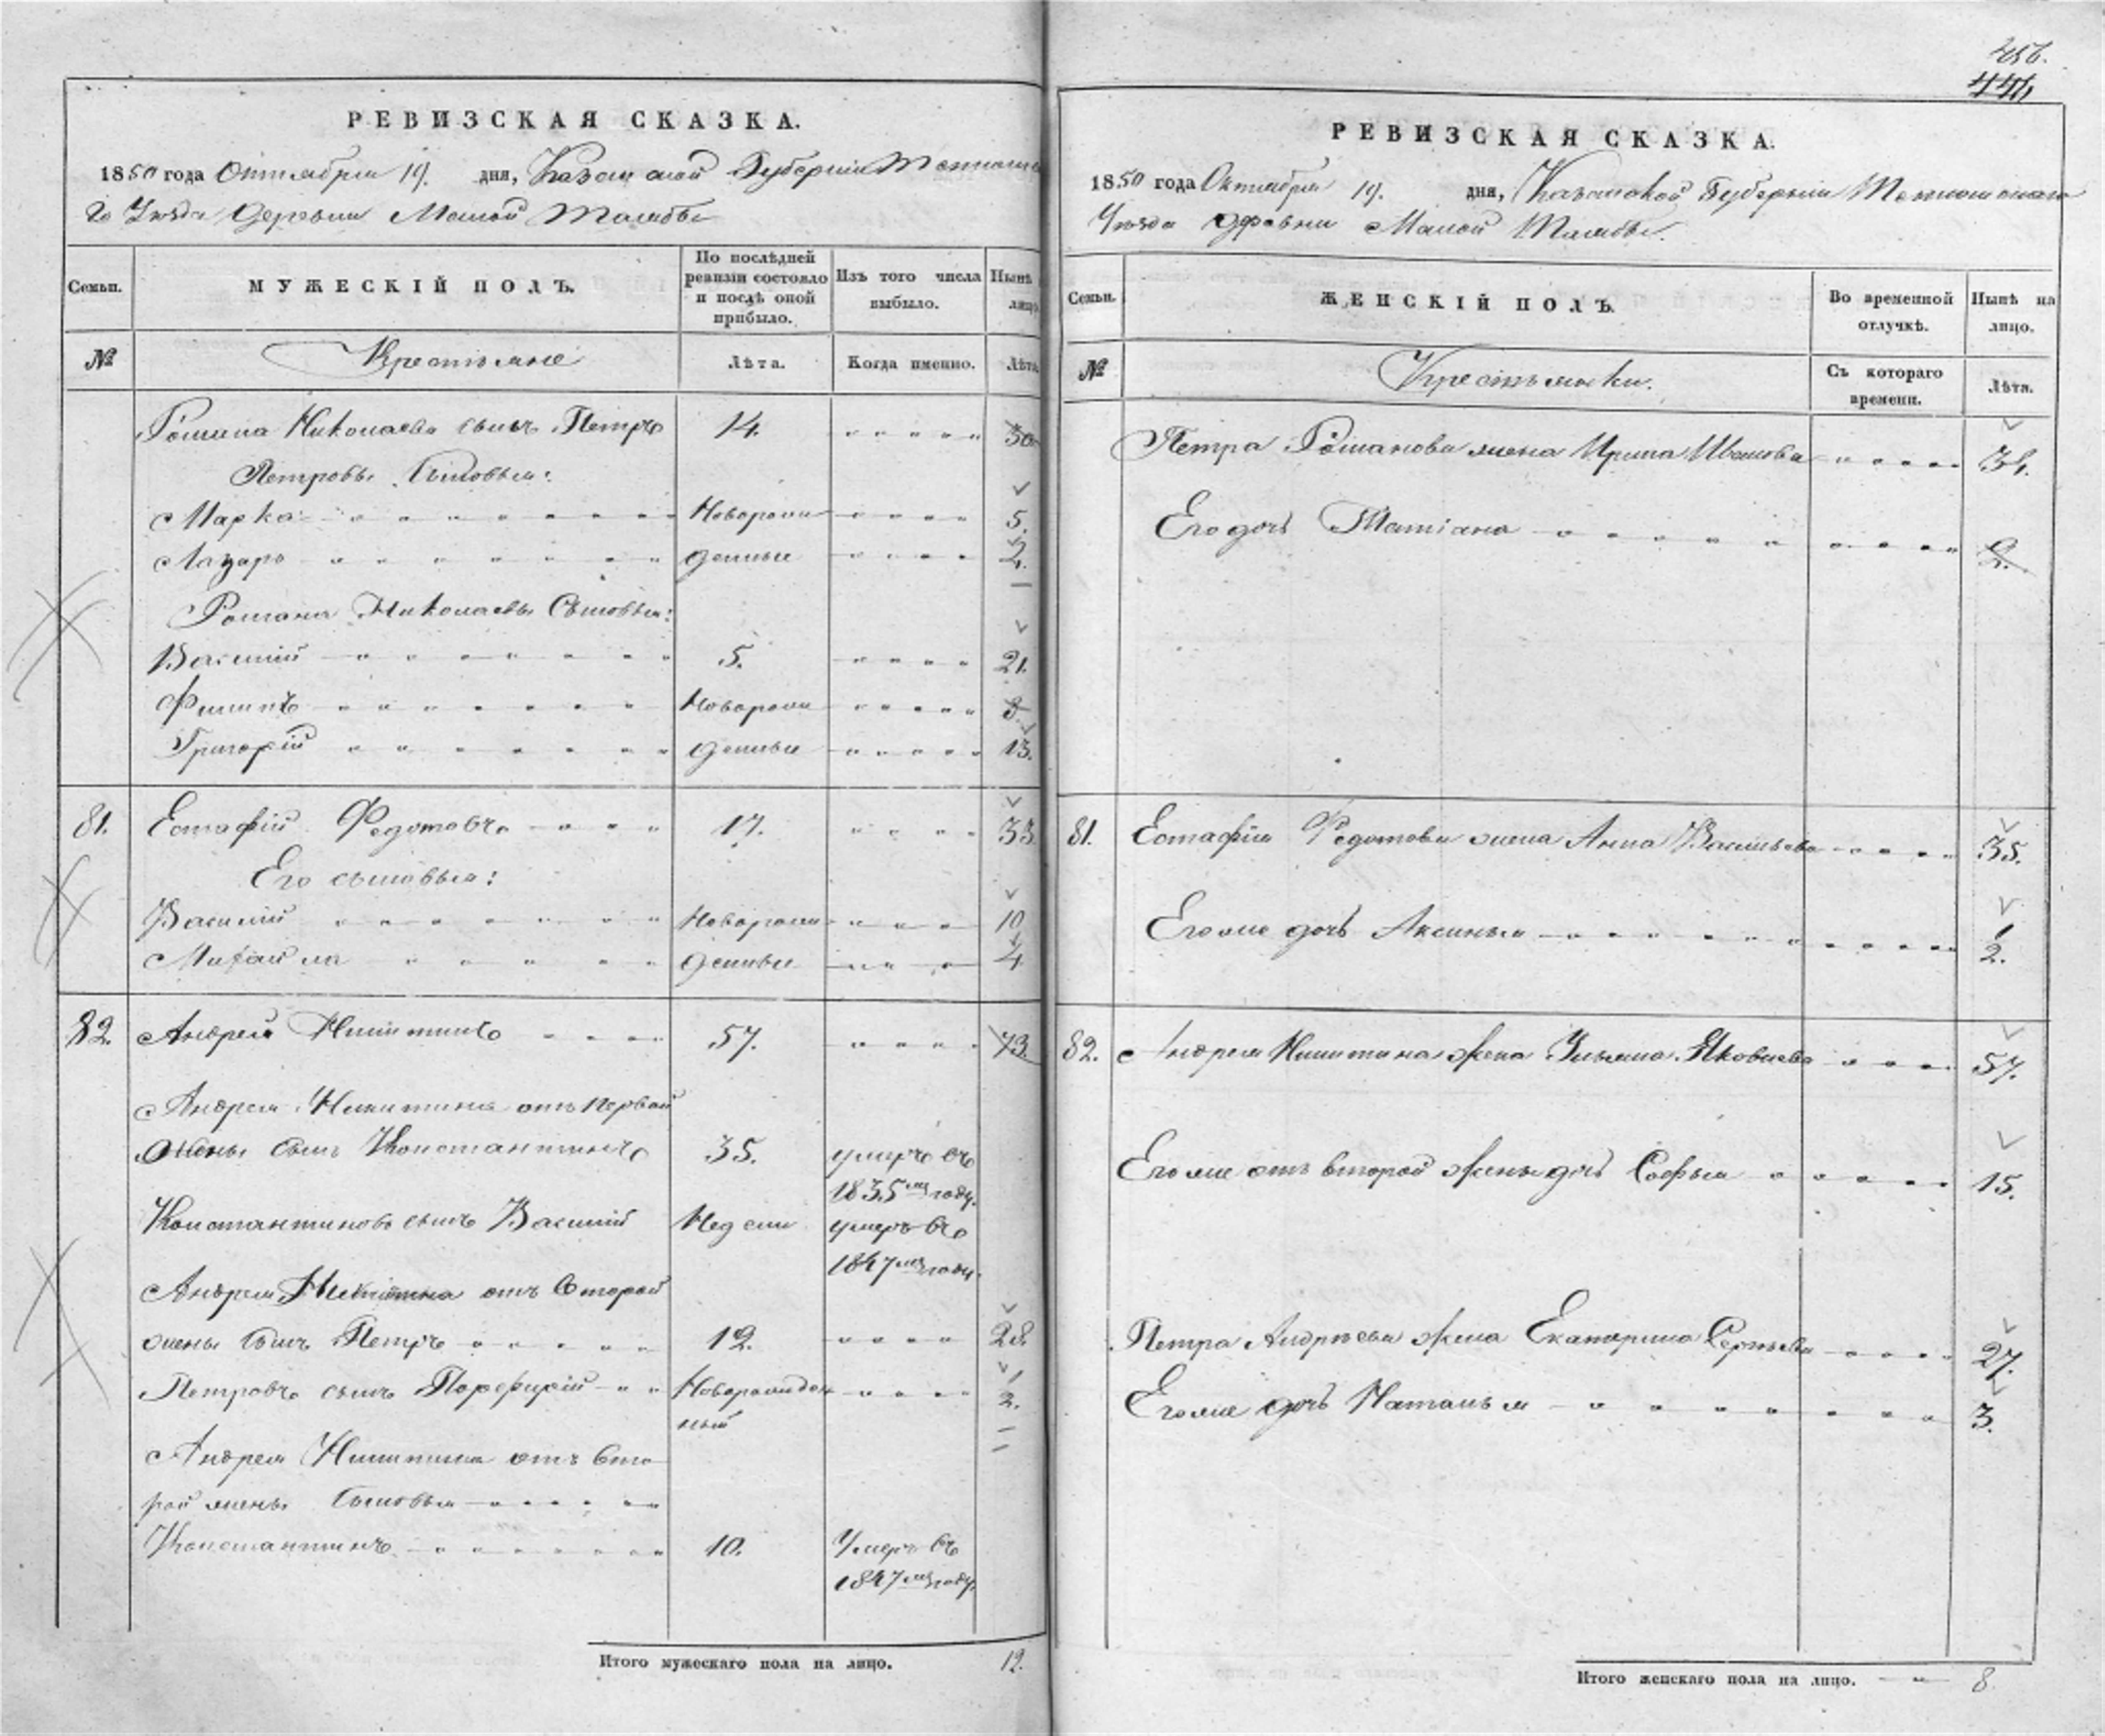 456.
446
РЕВИЗСКАЯ СКАЗКА.
1850 года Октября 19. дня, Казанской Губернии
го Уезда Деревни Малой
Семьи. МУЖЕСКІЙ ПОЛЪ. По послѣдней ревизіи состояло и послѣ оной прибыло. Изъ того числа выбыло. Нынѣ лицо
№ Крестьяне Лѣта. Когда именно. Лѣта
Романа Николаева сынъ Петръ 14. 30
Петровы Сыновья:
Марка Новорож 5.
Лазарь денные 2.
Романа Николаева Сыновья:
Василий 5. 21.
Филипъ Новорож 8.
Григорій денные 13.
81. Естафій Федотовъ 17. 33
Его сыновья:
Василий Новорож 10
Михайла денные 4
82. Андрей Никитинъ 57. 73.
Андрея Никитина отъ первой
жены сынъ Константинъ 35. умеръ въ
1835мъ году.
Константиновъ сынъ Василий Недели умеръ въ
1847мъ году.
Андрея Никитина отъ второй
жены сынъ Петръ 12. 28.
Петровъ сынъ Порфирій Новорожден 2.
ный
Андрея Никитина отъ вто
рой жены Сыновья
Константинъ 10. Умеръ въ
1847мъ году
Итого мужескаго пола на лицо. 12.
РЕВИЗСКАЯ СКАЗКА.
1850 года Октября 19. дня, Казанской Губерніи
Уезда Деревни Малой
Семьи. ЖЕНСКІЙ ПОЛЪ. Во временной отлучкѣ. Нынѣ на лицо.
№ Крестьянки. Съ котораго времени. Лѣта.
Петра Романова жена Ирина Иванова 34.
Его дочь Татіана 2.
81. Естафія Федотова жена Анна Васильева 35.
Его же дочь Аксинья 2.
82. Андрея Никитина жена Ульяна Яковлева 57.
Его же отъ второй жены дочь Софья 15.
Петра Андреева жена Екатерина Сергѣева 27.
Его же дочь Наталья 3.
Итого женскаго пола на лицо. 8